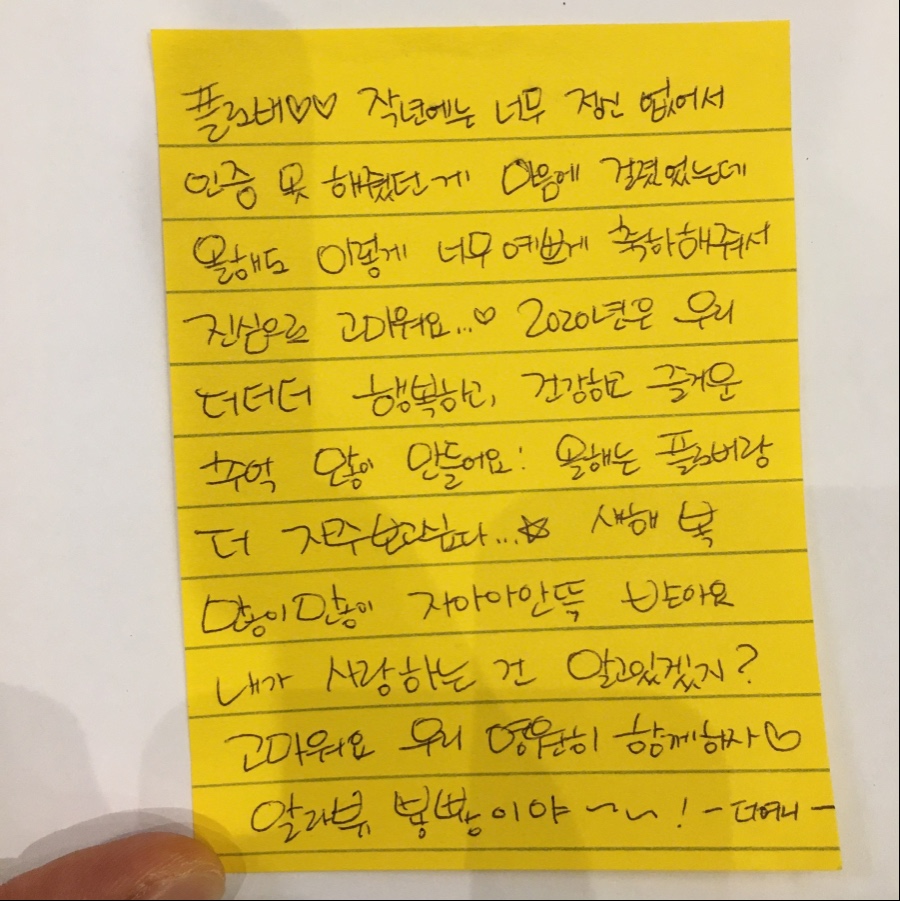 플로버♡♡ 작년에는 너무 정신 없어서
인증 못 해줬던 게 마음에 걸렸었는데
올해도 이렇게 너무 예쁘게 축하해줘서
진심으로 고마워요...♡ 2020년은 우리
더더더 행복하고, 건강하고 즐거운
추억 많이 만들어요! 올해는 플로버랑
더 자주보고싶다...☆ 새해 복
많이많이 자아아안뜩 받아요
내가 사랑하는 건 알고있겠지?
고마워요 우리 영원히 함께하자♡
알라뷰 뿅뿅이야~~!